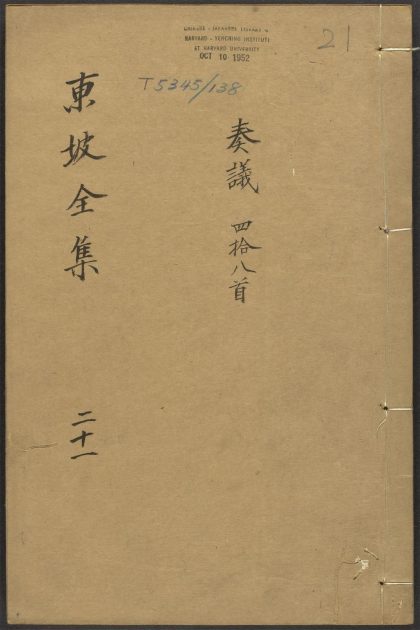 CHINESE - JAPANESE LIBRARY
HARVARD - YENCHING INSTITUTE
AT HARVARD UNIVERSITY
OCT 10 1952
21
T5345/138
奏議 四拾八首
東坡全集
二十一